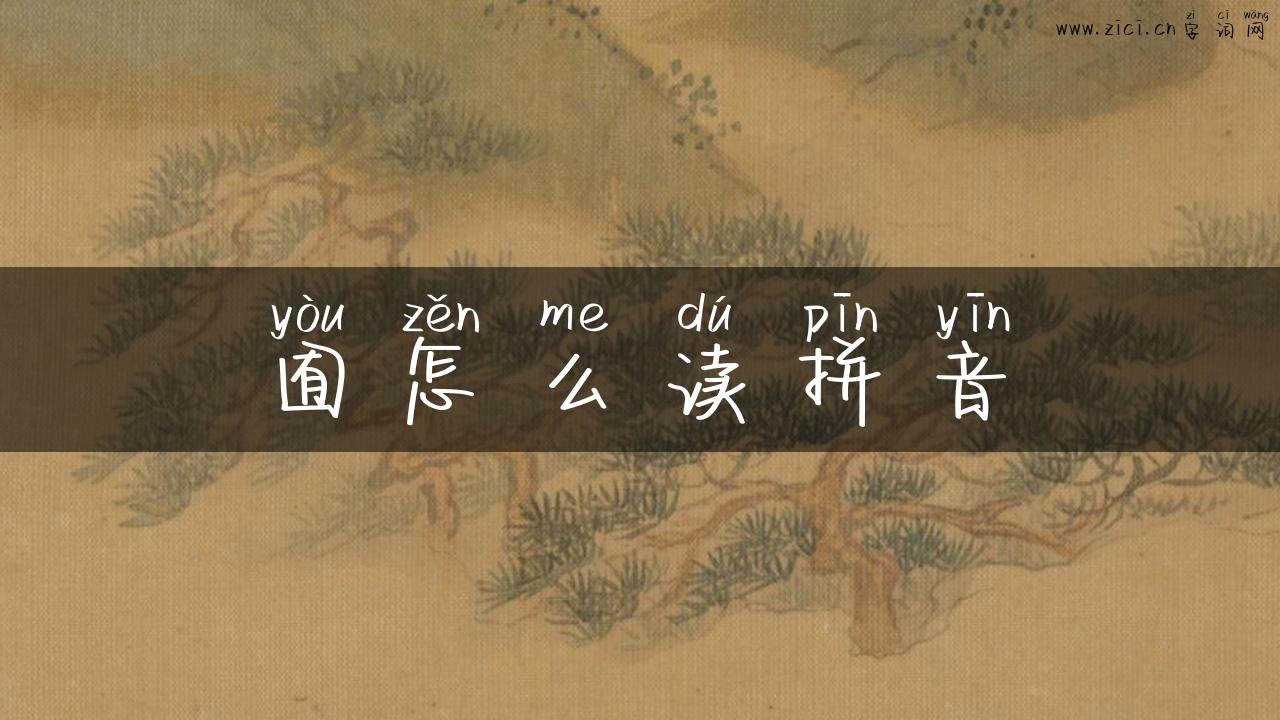 zì cí wǎng
www.zici.cn 字词网
yòu zěn me dú pīn yīn
囿怎么读拼音